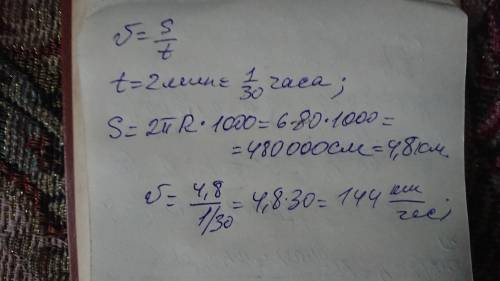 v = S/t
t = 2мин = 1/30 часа;
S = 2πR·1000 = 6·80·1000 =
= 480000см = 4,8км.
v = 4,8/1/30 = 4,8·30 = 144 км/час;